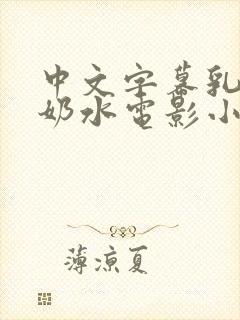 中文字幕乳
奶水电影小
薄凉夏